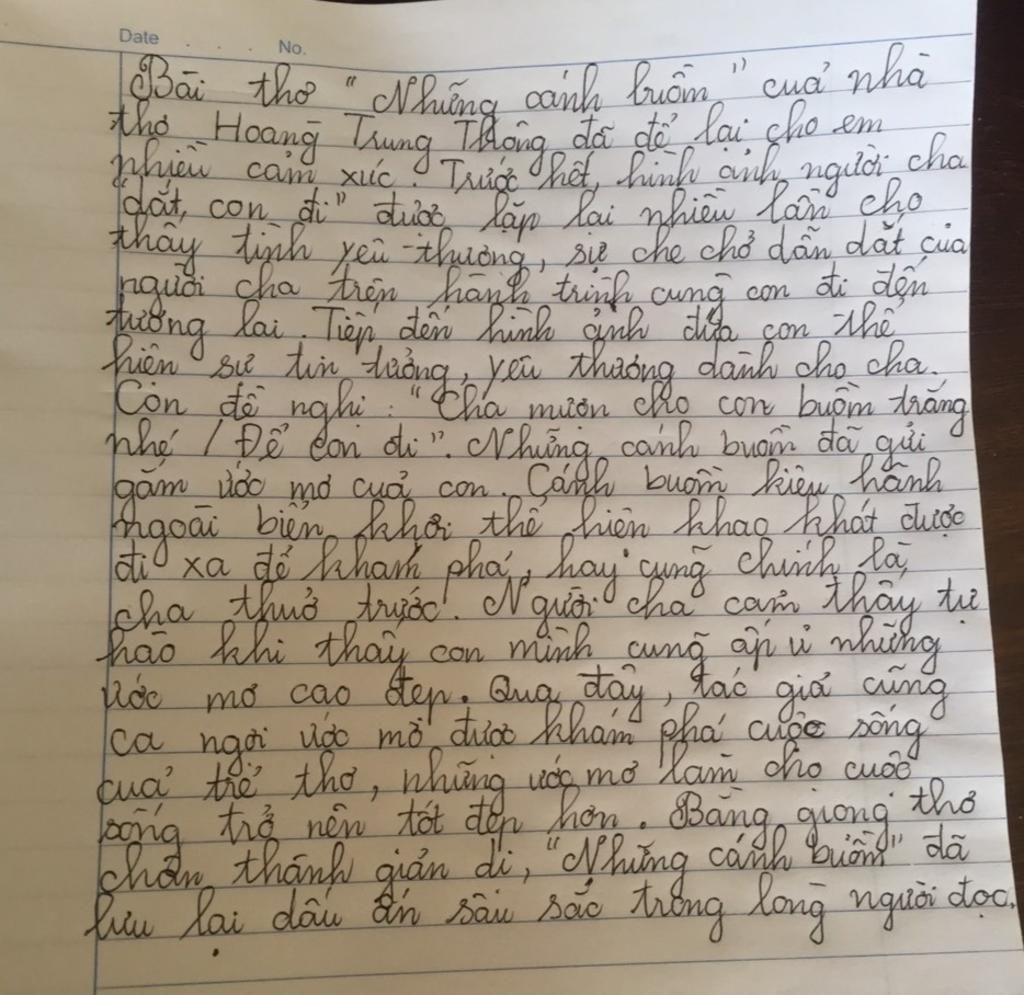 Date . . . No.
Bài thơ "Những cánh buồm" của nhà
thơ Hoàng Trung Thông đã để lại cho em
nhiều cảm xúc. Trước hết, hình ảnh người cha
"dắt con đi" được lặp lại nhiều lần cho
thấy tình yêu thương, sự che chở dẫn dắt của
người cha trên hành trình cùng con đi đến
tương lai. Tiếp đến hình ảnh đứa con thể
hiện sự tin tưởng, yêu thương dành cho cha.
Còn đề nghị: "Cha mượn cho con buồm trắng
nhé / Để con đi". Những cánh buồm đã gửi
gắm ước mơ của con. Cánh buồm kiêu hãnh
ngoài biển khơi thể hiện khao khát được
đi xa để khám phá, hay cũng chính là
cha thuở trước. Người cha cảm thấy tự
hào khi thấy con mình cũng ấp ủ những
ước mơ cao đẹp. Qua đây, tác giả cũng
ca ngợi ước mơ được khám phá cuộc sống
của trẻ thơ, những ước mơ làm cho cuộc
sống trở nên tốt đẹp hơn. Bằng giọng thơ
chân thành giản dị, "Những cánh buồm" đã
lưu lại dấu ấn sâu sắc trong lòng người đọc.